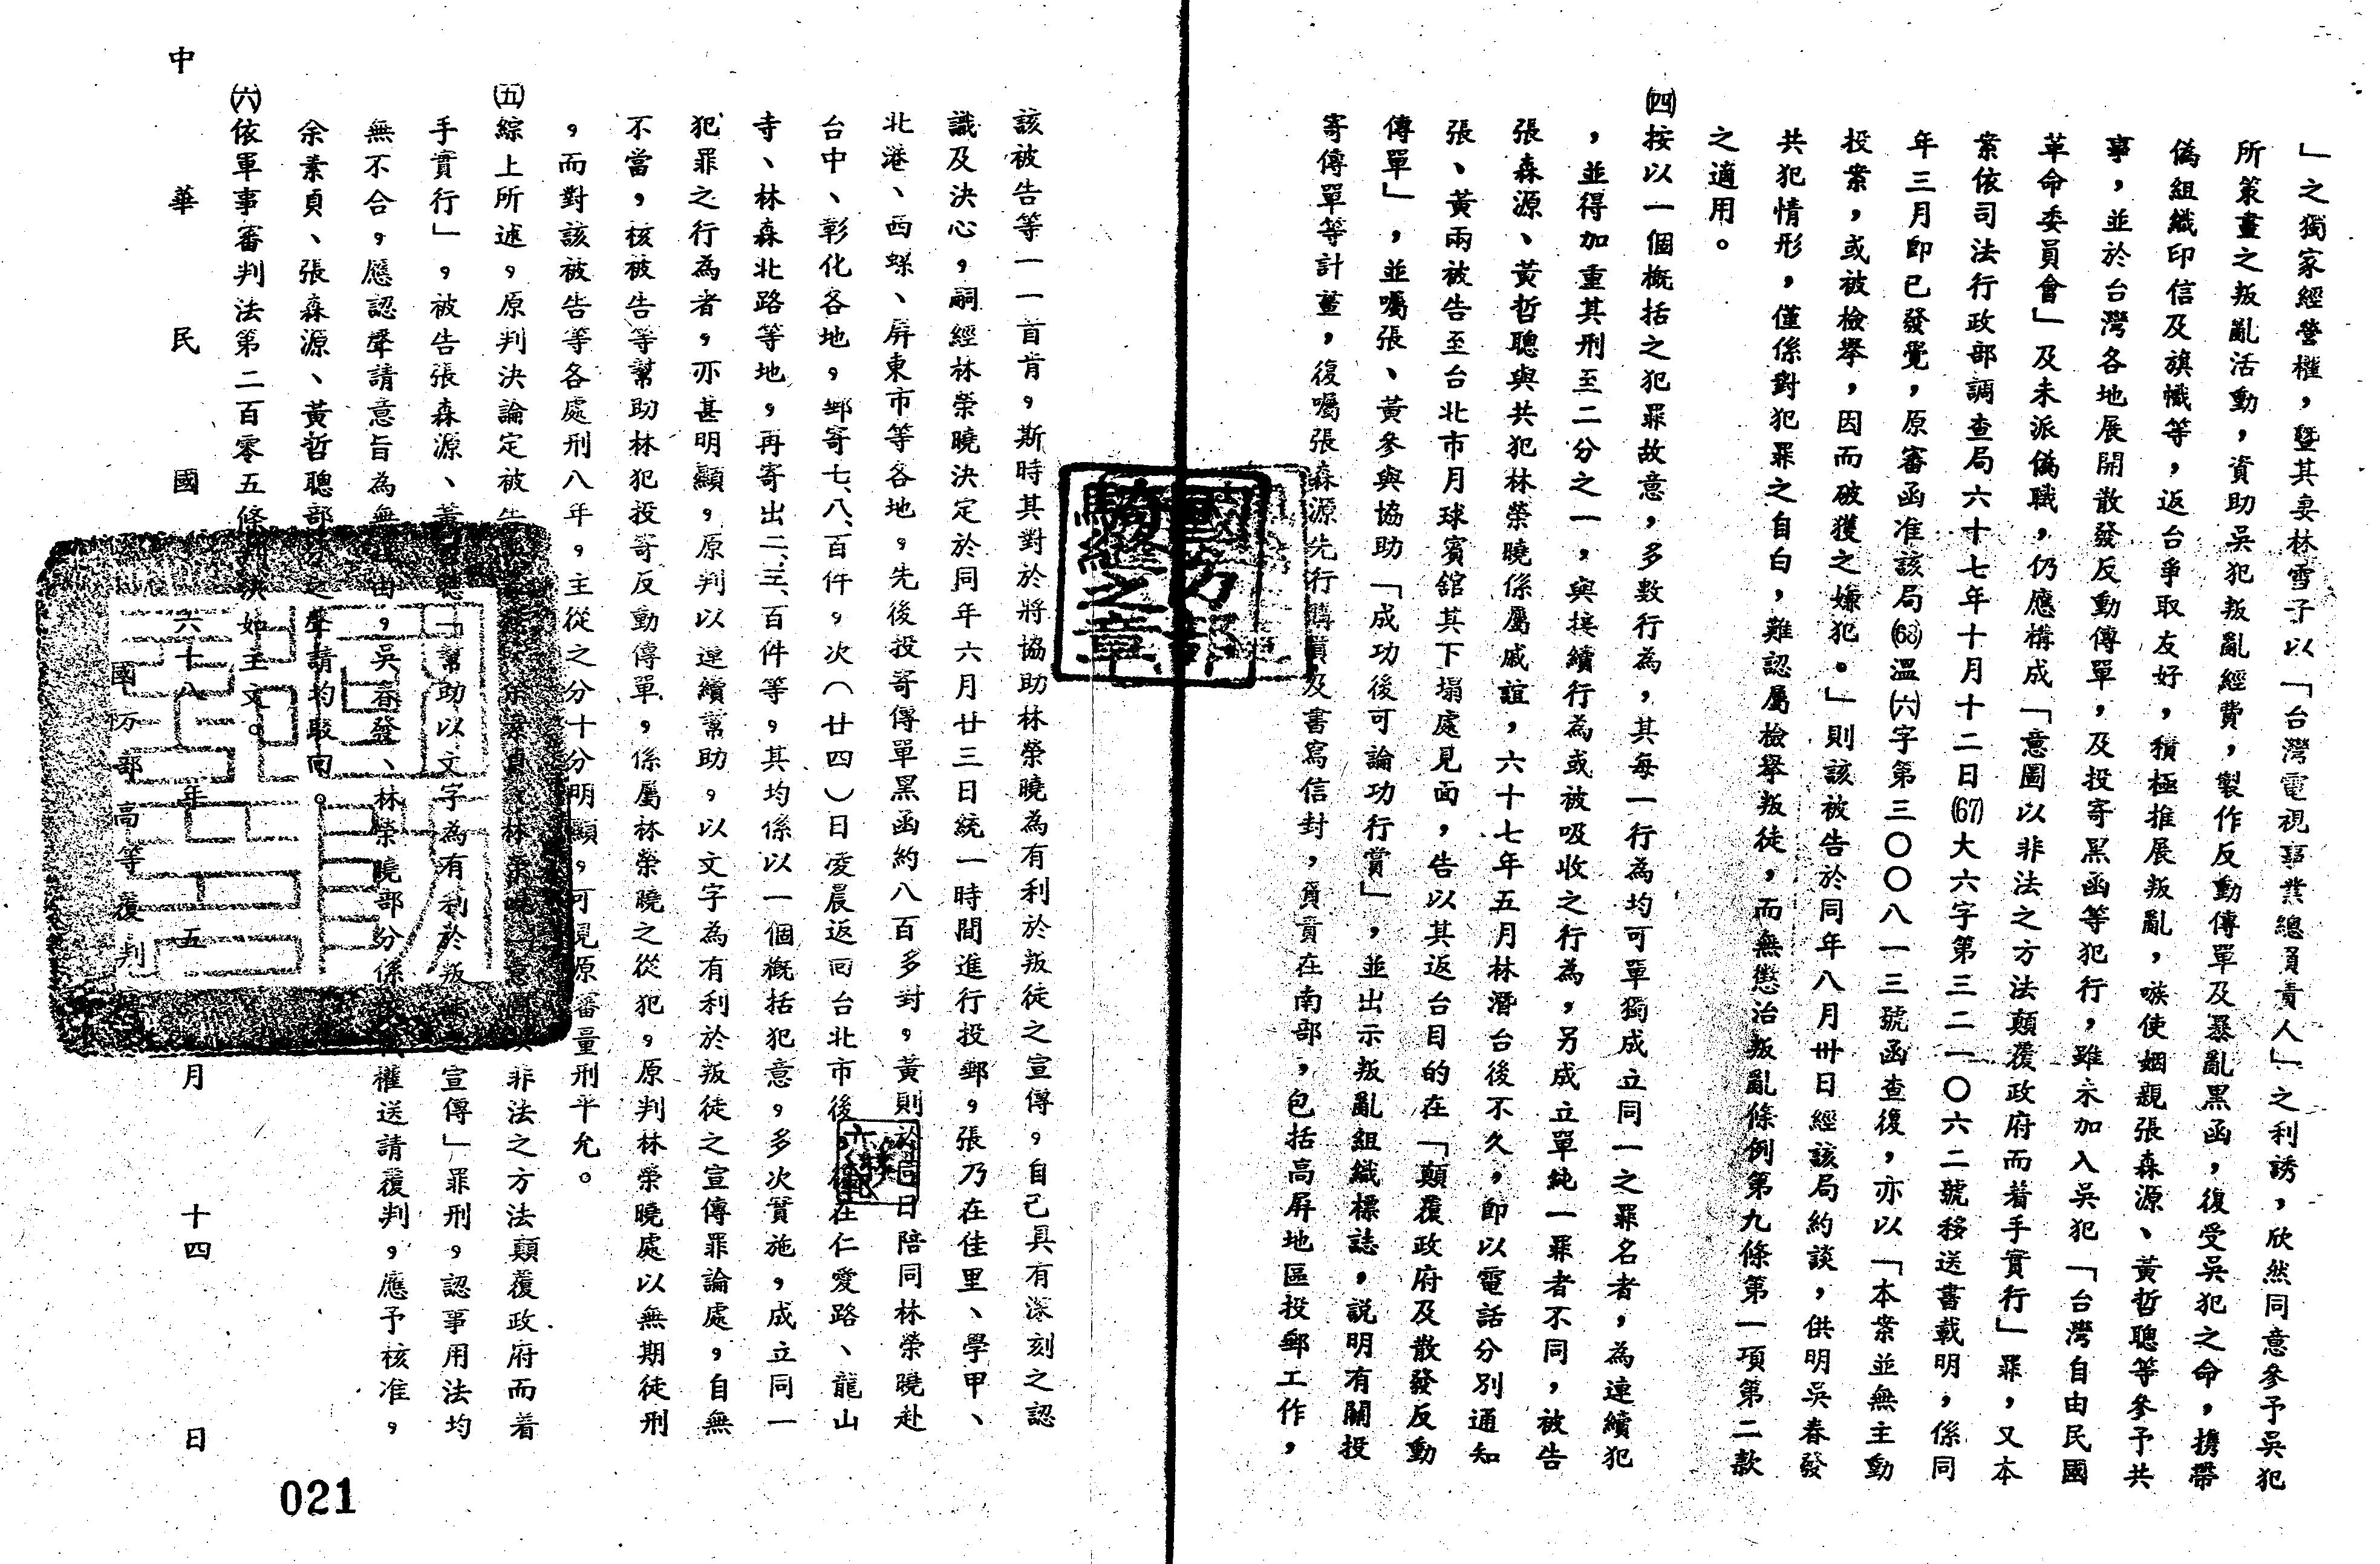 」之獨家經營權，暨其妻林雪子以「台灣電視事業總負責人」之利誘，欣然同意參予吳犯
所策畫之叛亂活動，資助吳犯叛亂經費，製作反動傳單及暴亂黑函，復受吳犯之命，携帶
偽組織印信及旗幟等，返台爭取友好，積極推展叛亂，嗾使姻親張森源、黃哲聰等參予共
事，並於台灣各地展開散發反動傳單，及投寄黑函等犯行，雖未加入吳犯「台灣自由民國
革命委員會」及未派偽職，仍應構成「意圖以非法之方法顛覆政府而着手實行」罪，又本
案依司法行政部調查局六十七年十月十二日(67)大六字第三二一〇六二號移送書載明，係同
年三月即已發覺，原審函准該局(68)溫㈥字第三〇〇八一三號函查復，亦以「本案並無主動
投案，或被檢舉，因而破獲之嫌犯。」則該被告於同年八月卅日經該局約談，供明吳春發
共犯情形，僅係對犯罪之自白，難認屬檢舉叛徒，而無懲治叛亂條例第九條第一項第二款
之適用。
㈣按以一個概括之犯罪故意，多數行為，其每一行為均可單獨成立同一之罪名者，為連續犯
，並得加重其刑至二分之一，與接續行為或被吸收之行為，另成立單純一罪者不同，被告
張森源、黃哲聰與共犯林榮曉係屬戚誼，六十七年五月林潛台後不久，即以電話分別通知
張、黃兩被告至台北市月球賓舘其下塌處見面，告以其返台目的在「顛覆政府及散發反動
傳單」，並囑張、黃參與協助「成功後可論功行賞」，並出示叛亂組織標誌，說明有關投
寄傳單等計畫，復囑張森源先行購買及書寫信封，負責在南部，包括高屏地區投郵工作，
國防部
騎縫之章
該被告等一一首肯，斯時其對於將協助林榮曉為有利於叛徒之宣傳，自己具有深刻之認
識及決心，嗣經林榮曉決定於同年六月廿三日統一時間進行投郵，張乃在佳里、學甲、
北港、西螺、屏東市等各地，先後投寄傳單黑函約八百多封，黃則於同日陪同林榮曉赴
台中、彰化各地，郵寄七、八、百件，次（廿四）日凌晨返回台北市後，復在仁愛路、龍山
寺、林森北路等地，再寄出二、三、百件等，其均係以一個概括犯意，多次實施，成立同一
犯罪之行為者，亦甚明顯，原判以連續幫助，以文字為有利於叛徒之宣傳罪論處，自無
不當，核被告等幫助林犯投寄反動傳單，係屬林榮曉之從犯，原判林榮曉處以無期徒刑
，而對該被告等各處刑八年，主從之分十分明顯，可見原審量刑平允。
㈤綜上所述，原判決論定被告 余素貞、林榮曉 非法之方法顛覆政府而着
手實行」，被告張森源、黃哲聰「幫助以文字為有利於叛徒之宣傳」罪刑，認事用法均
無不合，應認聲請意旨為無理由，吳春發、林榮曉部分係 職權送請覆判，應予核准，
余素貞、張森源、黃哲聰部分之聲請均駁回。
㈥依軍事審判法第二百零五條判決如主文。
中華民國六十八年五月十四日
國防部高等覆判
021